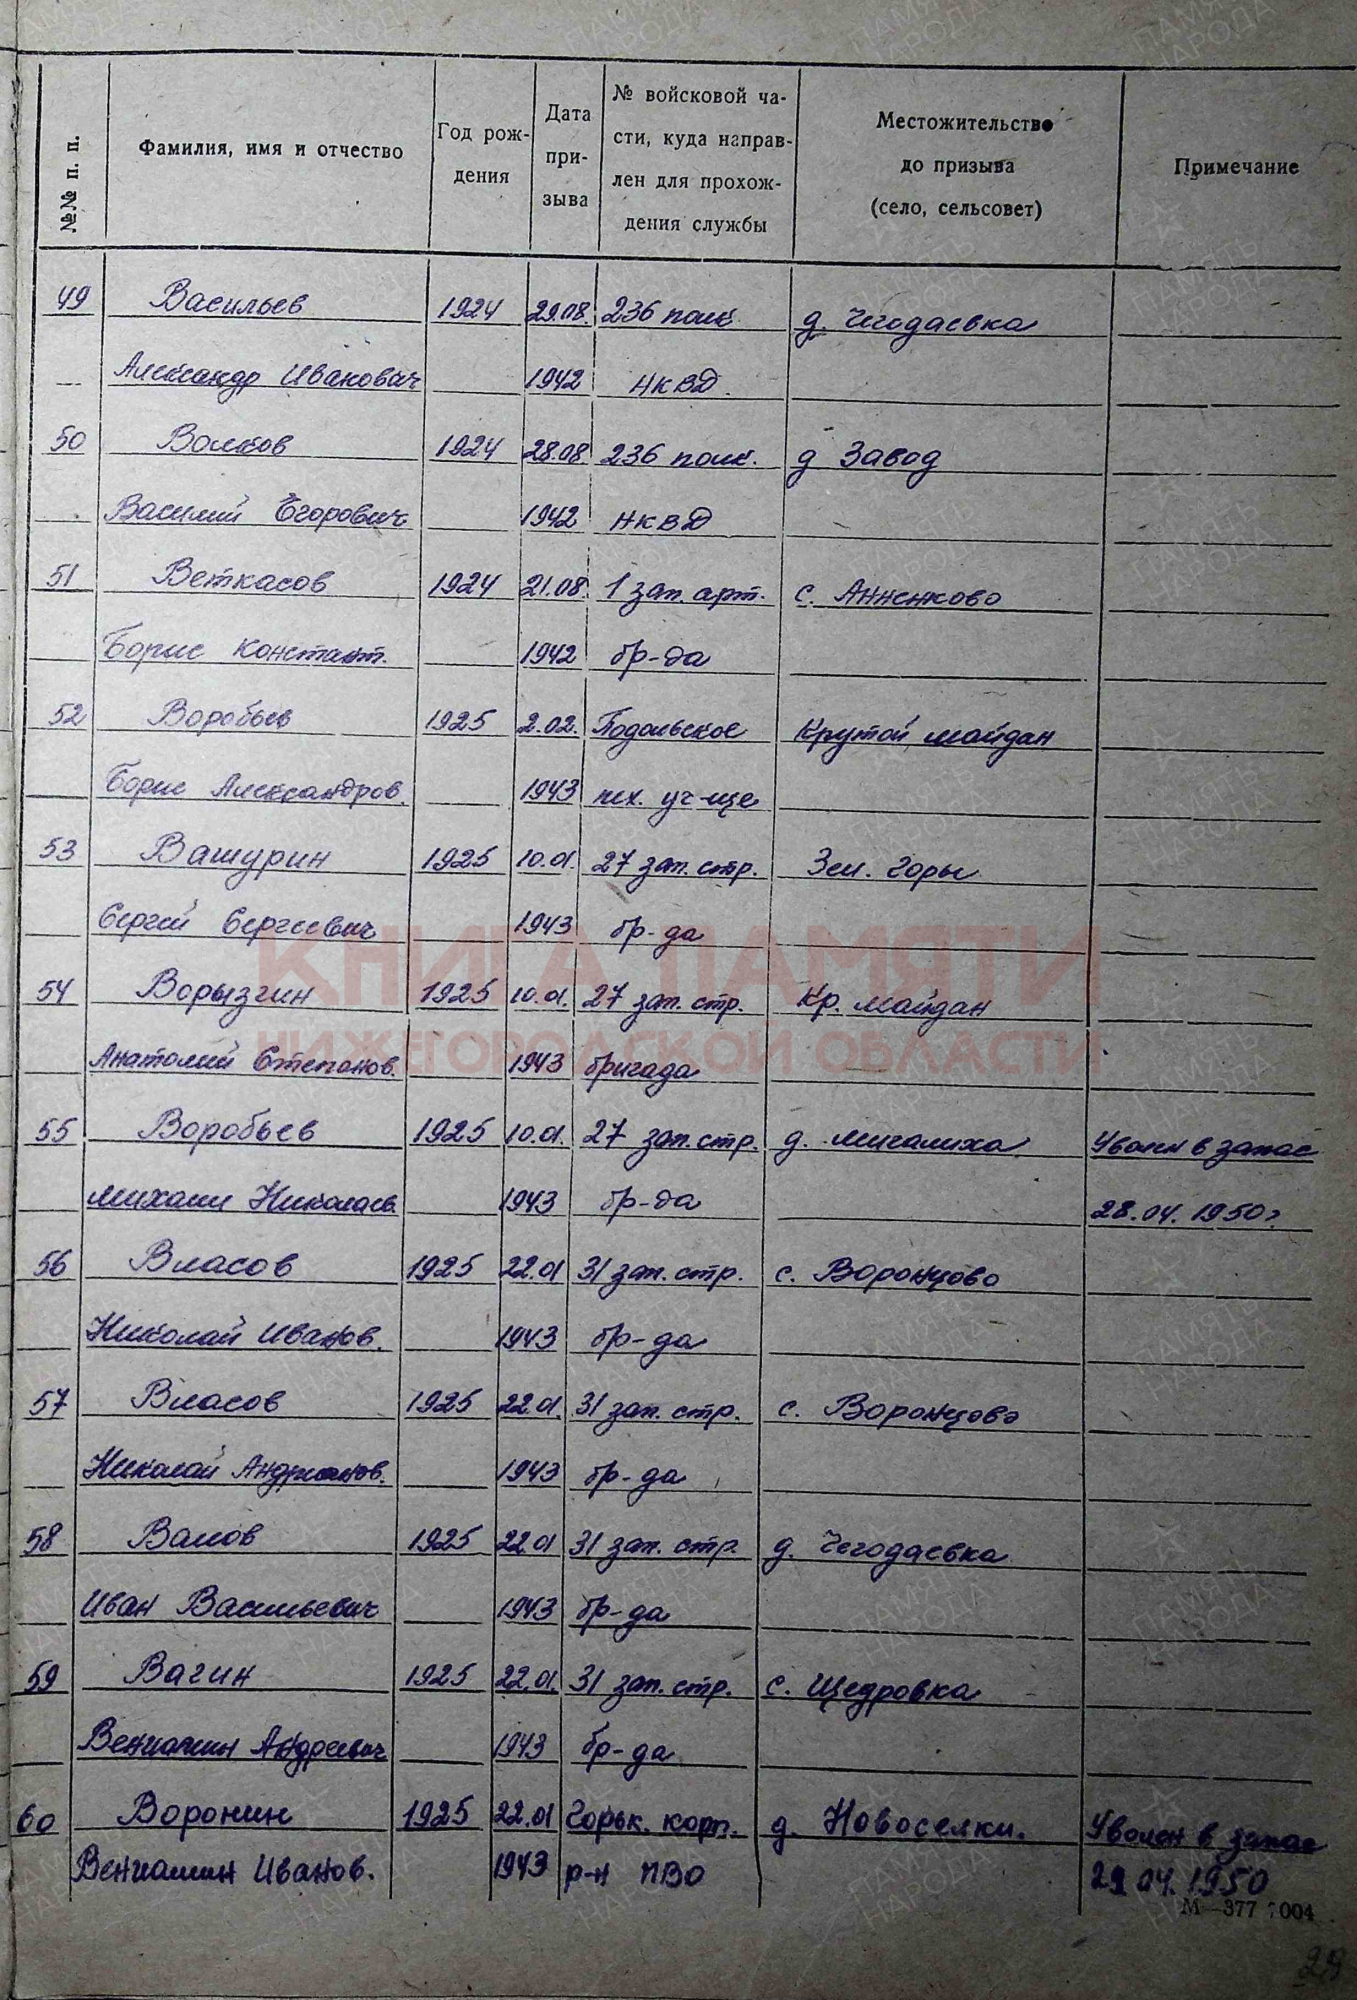 №№ п. п. Фамилия, имя и отчество Год рождения Дата призыва № войсковой части, куда направлен для прохождения службы Местожительство до призыва (село, сельсовет) Примечание
49 Васильев 1924 29.08. 236 полк д. Чегодаевка
Александр Иванович 1942 НКВД
50 Волков 1924 28.08 236 полк. д Завод
Василий Егорович 1942 НКВД
51 Веткасов 1924 21.08. 1 зап. арт. с. Анненково
Борис Констант. 1942 бр-да
52 Воробьев 1925 2.02. Подольское Крутой майдан
Борис Александров. 1943 пех. уч-ще
53 Вашурин 1925 10.01. 27 зап. стр. Зел. Горы
Сергей Сергеевич 1943 бр-да
54 Ворызгин 1925 10.01. 27 зап. стр. Кр. майдан
Анатолий Степанов. 1943 бригада
55 Воробьев 1925 10.01. 27 зап. стр. д. мигалиха Уволен в запас
михаил Николаев. 1943 бр-да 28.04. 1950г
56 Власов 1925 22.01 31 зап. стр. с. Воронцово
Николай Иванов. 1943 бр-да
57 Власов 1925 22.01. 31 зап. стр. с. Воронцово
Николай Андрианов. 1943 бр-да
58 Валов 1925 22.01 31 зап. стр. д. Чегодаевка
Иван Васильевич 1943 бр-да
59 Вагин 1925 22.01. 31 зап. стр. с. Щедровка
Вениамин Андреевич 1943 бр-да
60 Воронин 1925 22.01 Горьк. корп. д. Новоселки. Уволен в запас
Вениамин Иванов. 1943 р-н ПВО 29 04. 1950
М—377 7004
29
КНИГА ПАМЯТИ
НИЖЕГОРОДСКОЙ ОБЛАСТИ
ПАМЯТЬ НАРОДА